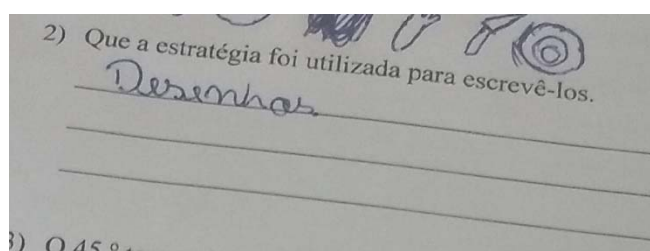 2) Que a estratégia foi utilizada para escrevê-los.
Desenhos.
3) O 45.º